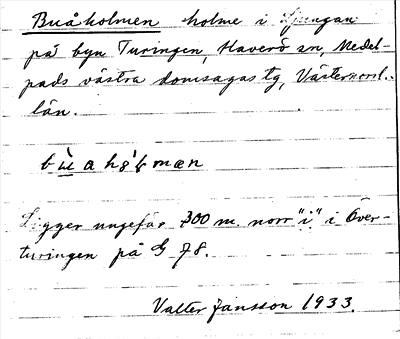 Buåholmen holme i Ljungan
på byn Turingen, Haverö sn, Medel-
pads västra domsagas tg, Västernorrl.
län.
bùahɒ̀lmæn
Ligger ungefär 300 m. norr "i" i Över-
turingen på G 78.
Valter Jansson 1933.